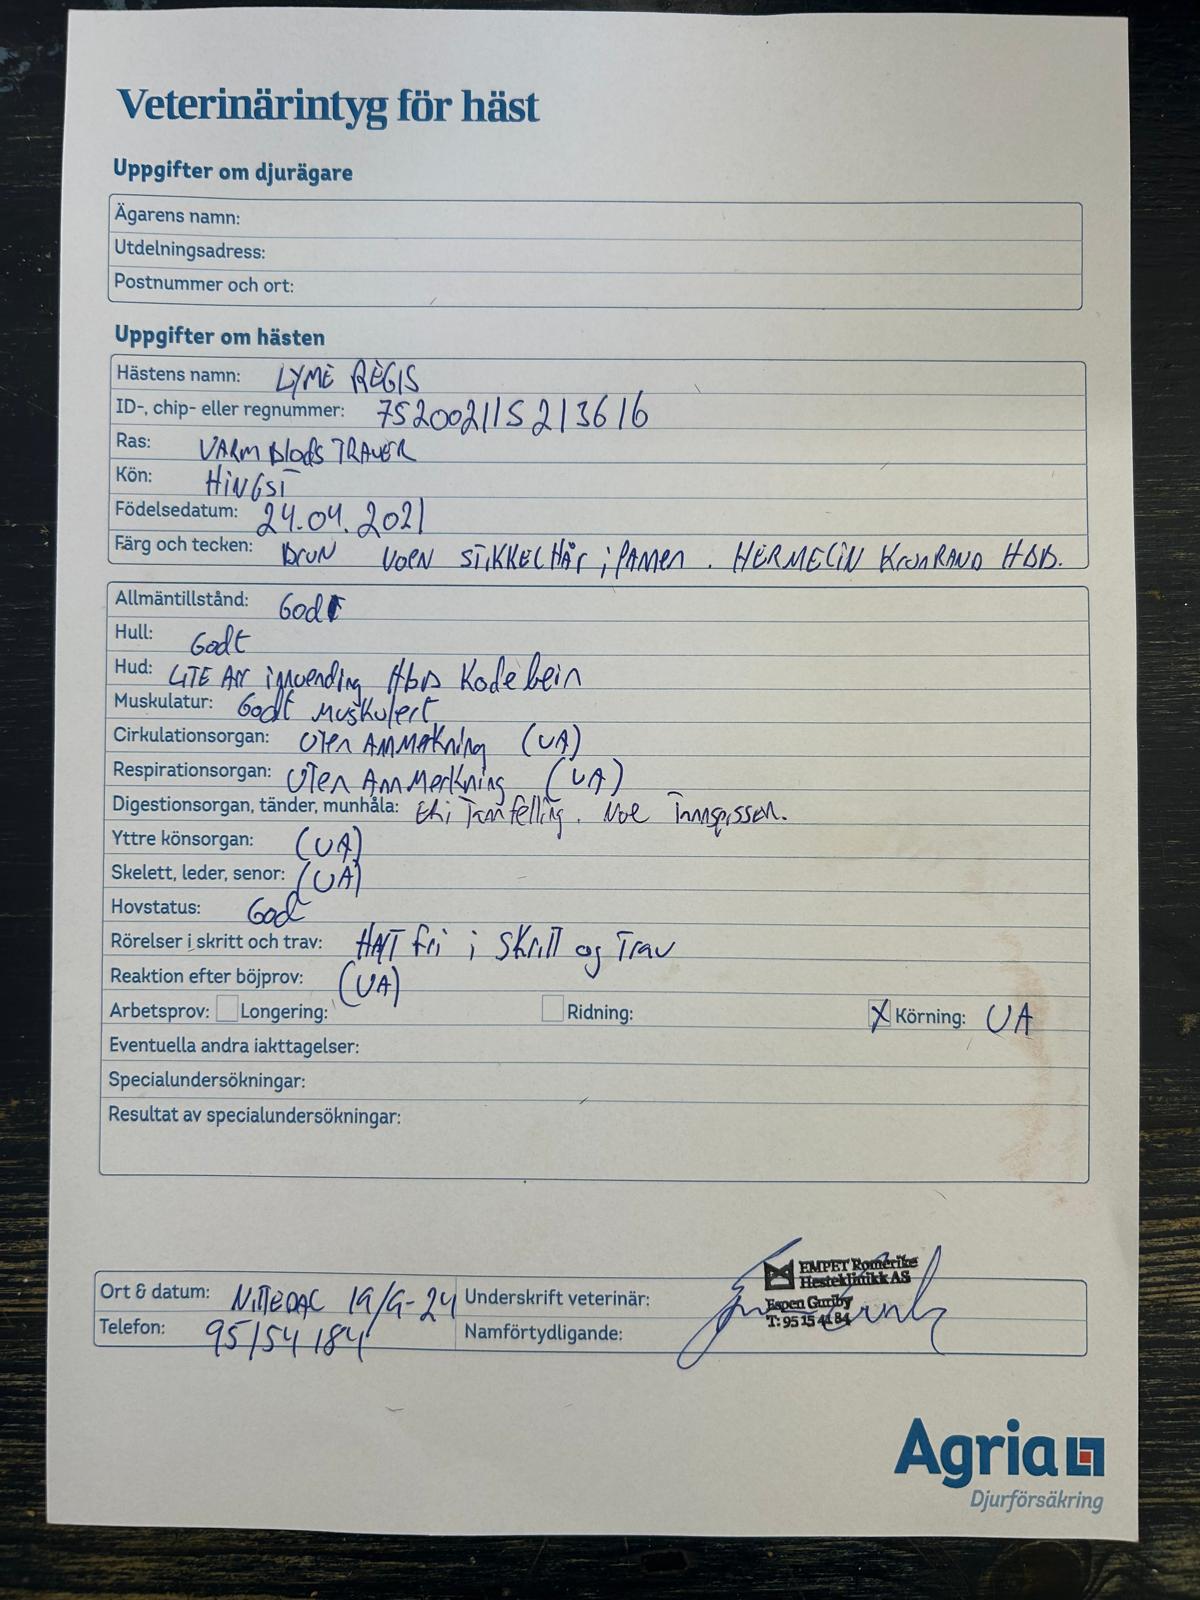 Veterinärintyg för häst
Uppgifter om djurägare
Ägarens namn:
Utdelningsadress:
Postnummer och ort:
Uppgifter om hästen
Hästens namn: LYME REGIS
ID-, chip- eller regnummer: 752002115213616
Ras: VARMBlodS TRAVER
Kön: HiNGST
Födelsedatum: 24.04.2021
Färg och tecken: BrUN NOEN STiKKELHÅr i PANEN. HERMELIN KronRAND HBB.
Allmäntillstånd: Godt
Hull: Godt
Hud: LITE Arr innvending HbB Kodebein
Muskulatur: Godt Muskulert
Cirkulationsorgan: UTen ANMerkning (UA)
Respirationsorgan: UTen AnnMerkning (UA)
Digestionsorgan, tänder, munhåla: Tannfelling. Noe Tannspisser.
Yttre könsorgan: (UA)
Skelett, leder, senor: (UA)
Hovstatus: God
Rörelser i skritt och trav: HALT fri i SKRITT og Trav
Reaktion efter böjprov: (UA)
Arbetsprov: Longering: Ridning: X Körning: UA
Eventuella andra iakttagelser:
Specialundersökningar:
Resultat av specialundersökningar:
EMPET Romerike
Hesteklinikk AS
Espen Gunby
T: 95 15 41 84
Ort & datum: NITTEDAL 19/9-24 Underskrift veterinär:
Telefon: 95154184 Namförtydligande:
Agria
Djurförsäkring